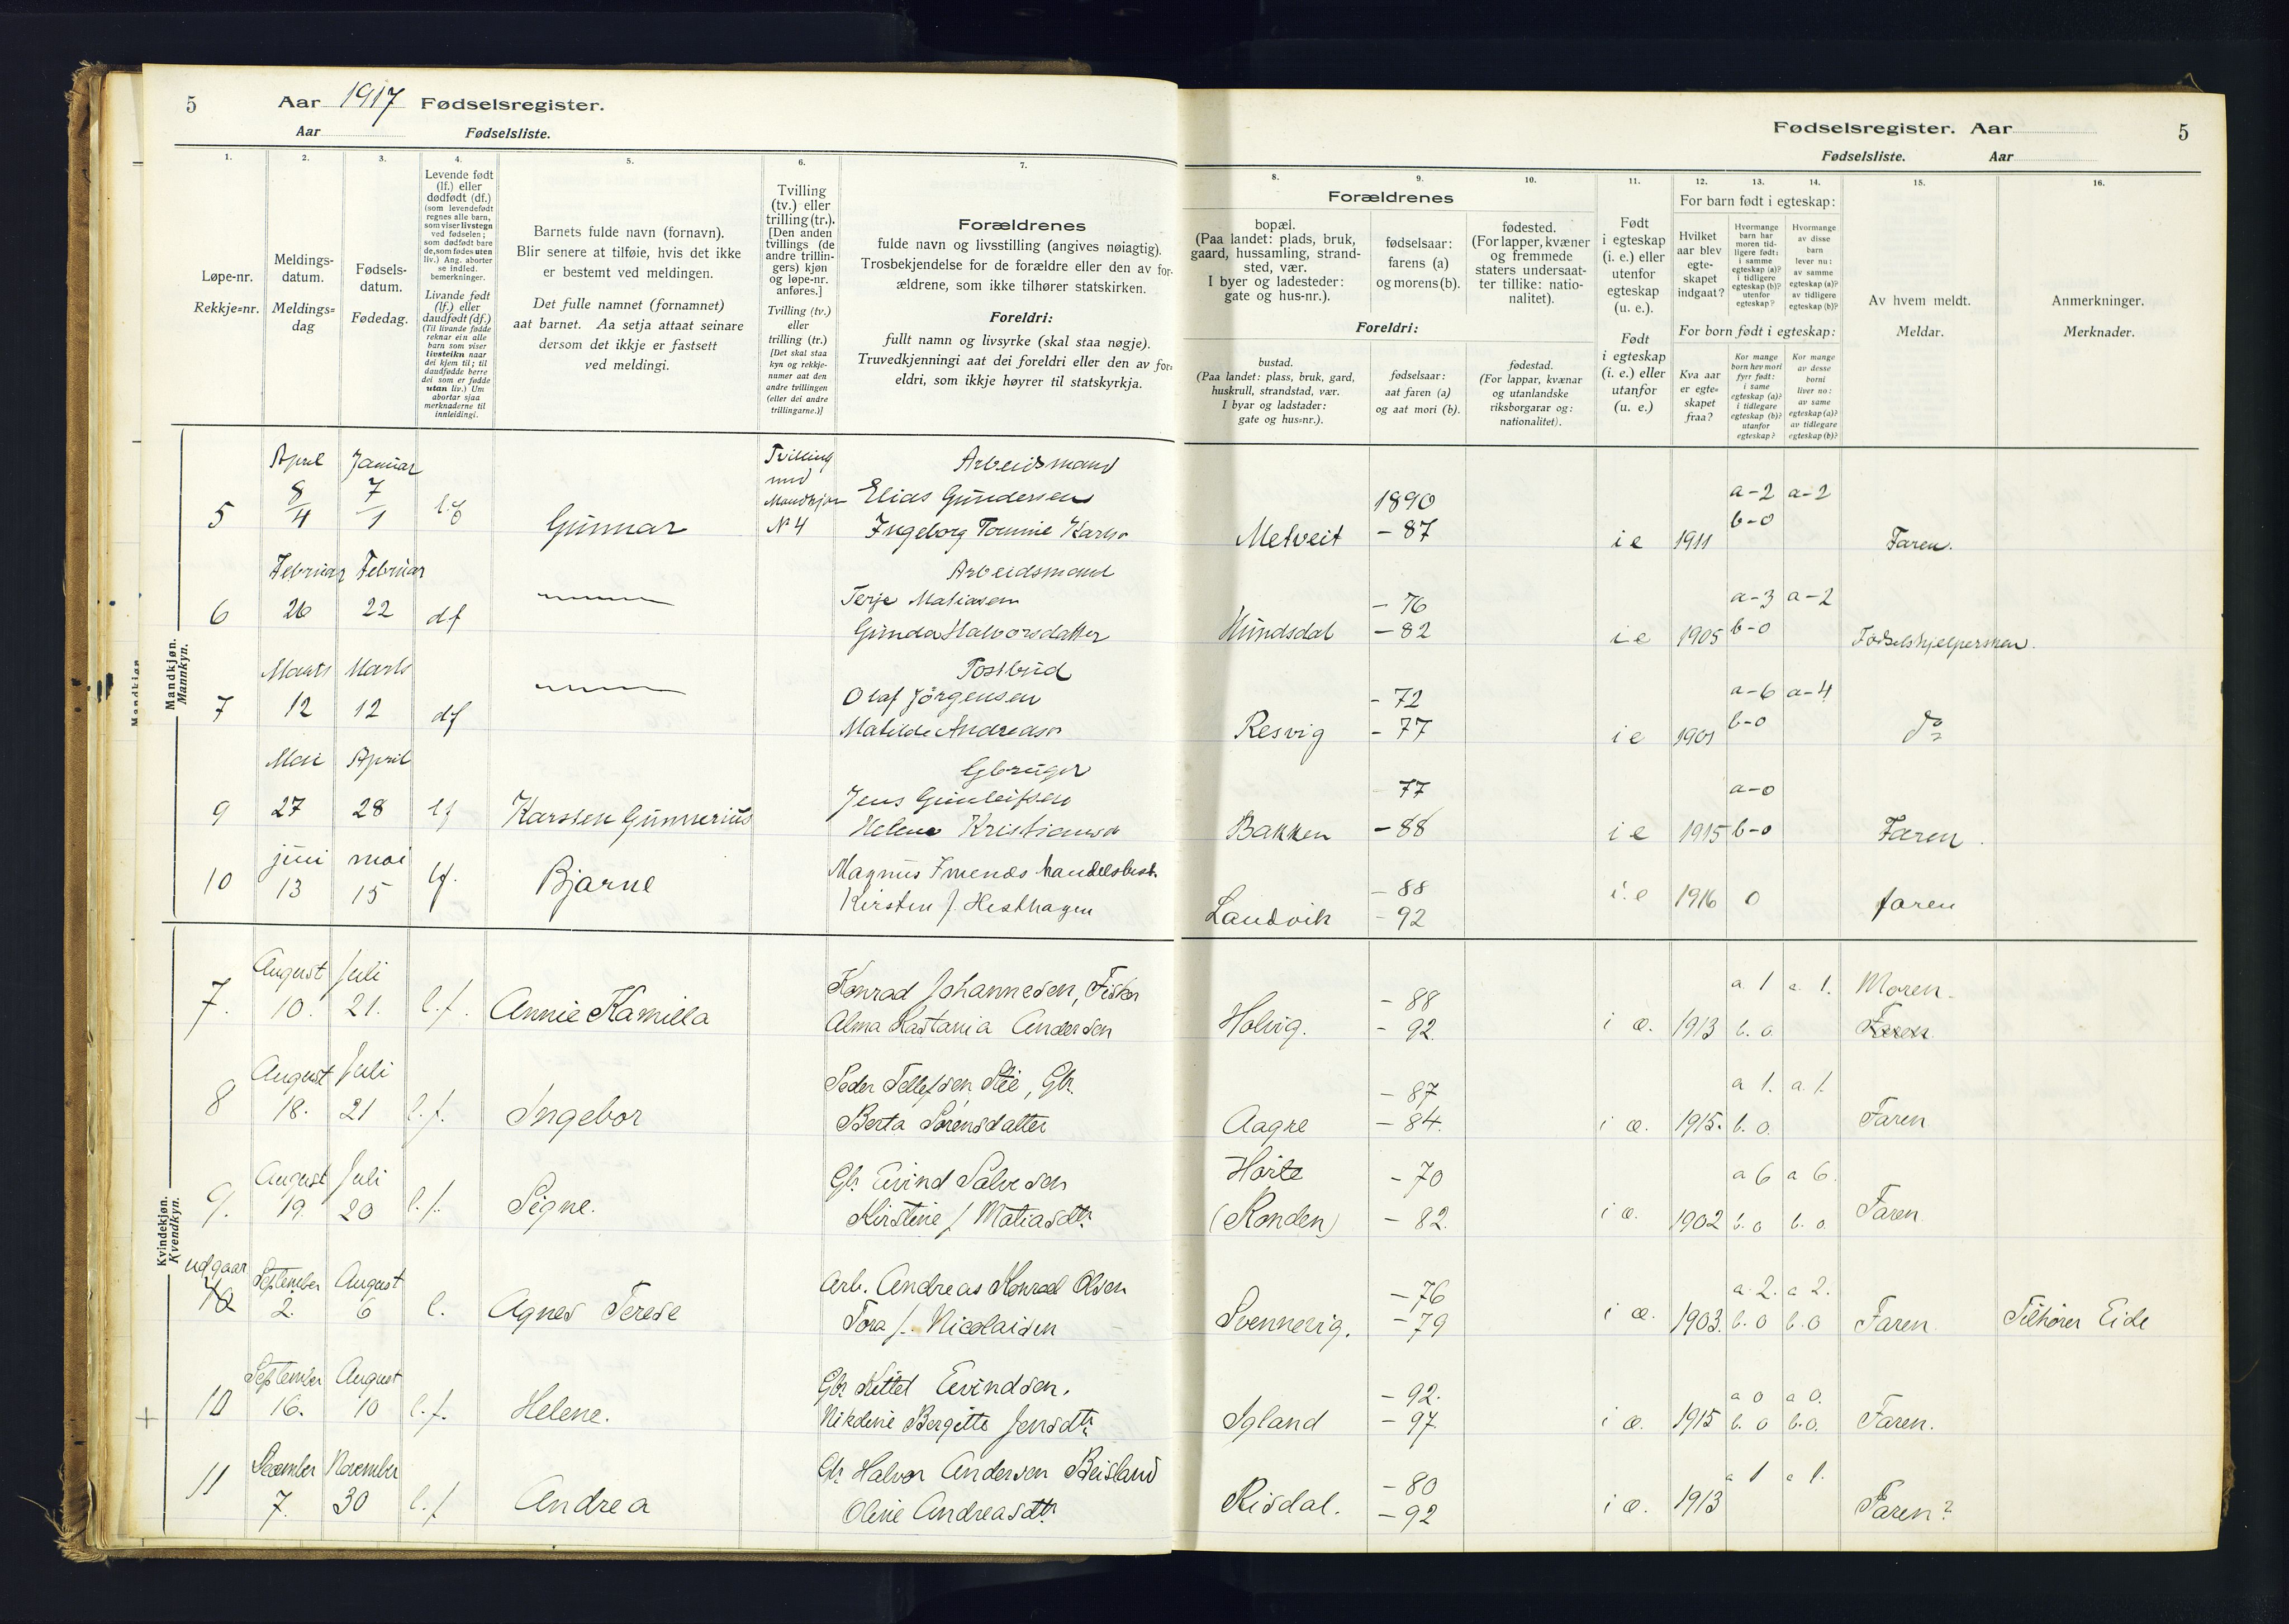 5 Aar 1917 Fødselsregister.
Aar Fødselsliste.
Fødselsregister. Aar 5
Fødselsliste. Aar
1. 2. 3. 4. 5. 6. 7. 8. 9. 10. 11. 12. 13. 14. 15. 16.
Løpe-nr.
Rekkje=nr.
Meldings-
datum.
Meldings=
dag
Fødsels-
datum.
Fødedag.
Levende født
(lf.) eller
dødfødt (df.)
(som levendefødt
regnes alle barn,
som viser livstegn
ved fødselen;
som dødfødt bare
de, som fødes uten
liv.) Ang. aborter
se indled.
bemerkninger.
Livande født
(lf.) eller
daudfødt (df.)
(Til livande fødde
reknar ein alle
barn som viser
livsteikn naar
dei kjem til; til
daudfødde berre
dei som er fødde
utan liv.) Um
abortar sjaa
merknaderne til
innleidingi.
Barnets fulde navn (fornavn).
Blir senere at tilføie, hvis det ikke
er bestemt ved meldingen.
Det fulle namnet (fornamnet)
aat barnet. Aa setja attaat seinare
dersom det ikkje er fastsett
ved meldingi.
Tvilling
(tv.) eller
trilling (tr.).
[Den anden
tvillings (de
andre trillin-
gers) kjøn
og løpe-nr.
anføres.]
Tvilling (tv.)
eller
trilling (tr.)
[Det skal staa
kyn og rekkje-
numer aat den
andre tvillingen
(eller dei andre
trillingarne.)]
Forældrenes
fulde navn og livsstilling (angives nøiagtig).
Trosbekjendelse for de forældre eller den av for-
ældrene, som ikke tilhører statskirken.
Foreldri:
fullt namn og livsyrke (skal staa nøgje).
Truvedkjenningi aat dei foreldri eller den av for=
eldri, som ikkje høyrer til statskyrkja.
Forældrenes
bopæl.
(Paa landet: plads, bruk,
gaard, hussamling, strand-
sted, vær.
I byer og ladesteder:
gate og hus-nr.).
fødselsaar:
farens (a)
og morens (b).
fødested.
(For lapper, kvæner
og fremmede
staters undersaat-
ter tillike: natio-
nalitet).
Foreldri:
bustad.
(Paa landet: plass, bruk, gard,
huskrull, strandstad, vær.
I byar og ladstader:
gate og hus=nr.).
fødselsaar:
aat faren (a)
og aat mori (b).
fødestad.
(For lappar, kvænar
og utanlandske
riksborgarar og:
nationalitet).
Født
i egteskap
(i. e.) eller
utenfor
egteskap
(u. e.).
Født
i egteskap
(i. e.) eller
utanfor
(u. e.)
For barn født i egteskap:
Hvilket
aar blev
egte-
skapet
indgaat?
Hvormange
barn har
moren tid-
ligere født:
i samme
egteskap (a)?
i tidligere
egteskap (b)?
utenfor
egteskap?
Hvormange
av disse
barn
lever nu:
av samme
egteskap (a)?
av tidligere
egteskap (b)?
For born født i egteskap:
Kva aar
er egte=
skapet
fraa?
Kor mange
born hev mori
fyrr født:
i same
egteskap (a)?
i tidlegare
egteskap (b)?
utanfor
egteskap?
Kor mange
av desse
borni
liver no:
av same
egteskap (a)?
av tidlegare
egteskap (b)?
Av hvem meldt.
Meldar.
Anmerkninger.
Merknader.
Mandkjøn.
Mannkyn.
April Januar Tvilling Arbeidsmand
5 8/4 7/1 l.f Gunnar med Mandkjøn N° 4 Elias Gundersen 1890 a-2 a-2
Ingeborg Tomine Karls Metveit - 87 i e 1911 b-0 Faren.
Februar Februar Arbeidsmand
6 26 22 df Terje Matiasen - 76 a-3 a-2
Gunda Halvorsdatter Hundsdal - 82 i e 1905 b-0 Fødselshjelpersken.
Marts Marts Postbud
7 12 12 df Olaf Jörgensen - 72 a-6 a-4
Matilde Andreasdr Resvig - 77 i e 1901 b-0 do
Mai April Gbruger
9 27 28 lf Karsten Gunnerius Jens Gunleifsen 77 a-0
Helene Kristiansdr Bakken - 88 i e 1915 b-0 Faren.
juni mai
10 13 15 lf. Bjarne Magnus Imenes handelsbest. - 88
Kirsten f. Hesthagen Landvik - 92 i.e 1916 0 faren
Kvindekjøn.
Kvendkyn.
August Juli Konrad Johannesen, Fisker - 88 a 1 a 1. Moren.
7. 10. 21. l.f. Annie Kamilla Alma Kastania Andersen Holvig. - 92. i æ. 1913 b. o. Faren
August Juli Peder Tellefsen Stie, Gbr. - 87 a 1. a 1.
8 18. 21 l.f. Ingebor Berta Sörensdatter Aagre - 84. i æ. 1915. b. o. Faren
August Juli Gbr Eivind Salvesen Hörte - 70 a 6 a 6.
9. 19. 20 l.f. Signe. Kirstine f. Matiasdtr (Konden) - 82. i æ. 1902 b. o b. o Faren
udgaar September August Arb. Andreas Konrad Olsen - 76 a. 2. a 2.
10 2. 6 l. Agnes Terese Tora f. Nicolaisen Svennevig. - 79 i æ. 1903. b. o b. o Faren Tilhører Eide
September August Gbr Kittel Eivindsen. - 92. a 0 a 0.
10 16. 10 l.f. Helene. Nikoline Bergitte Jensdtr Igland - 97. i æ. 1915 b. o b. o. Faren.
December November Gbr Halvor Andersen Beisland - 80 a 1 a 1.
11 7. 30 l.f Andrea Oline Andreasdtr Risdal. - 92 i æ. 1913 Faren?